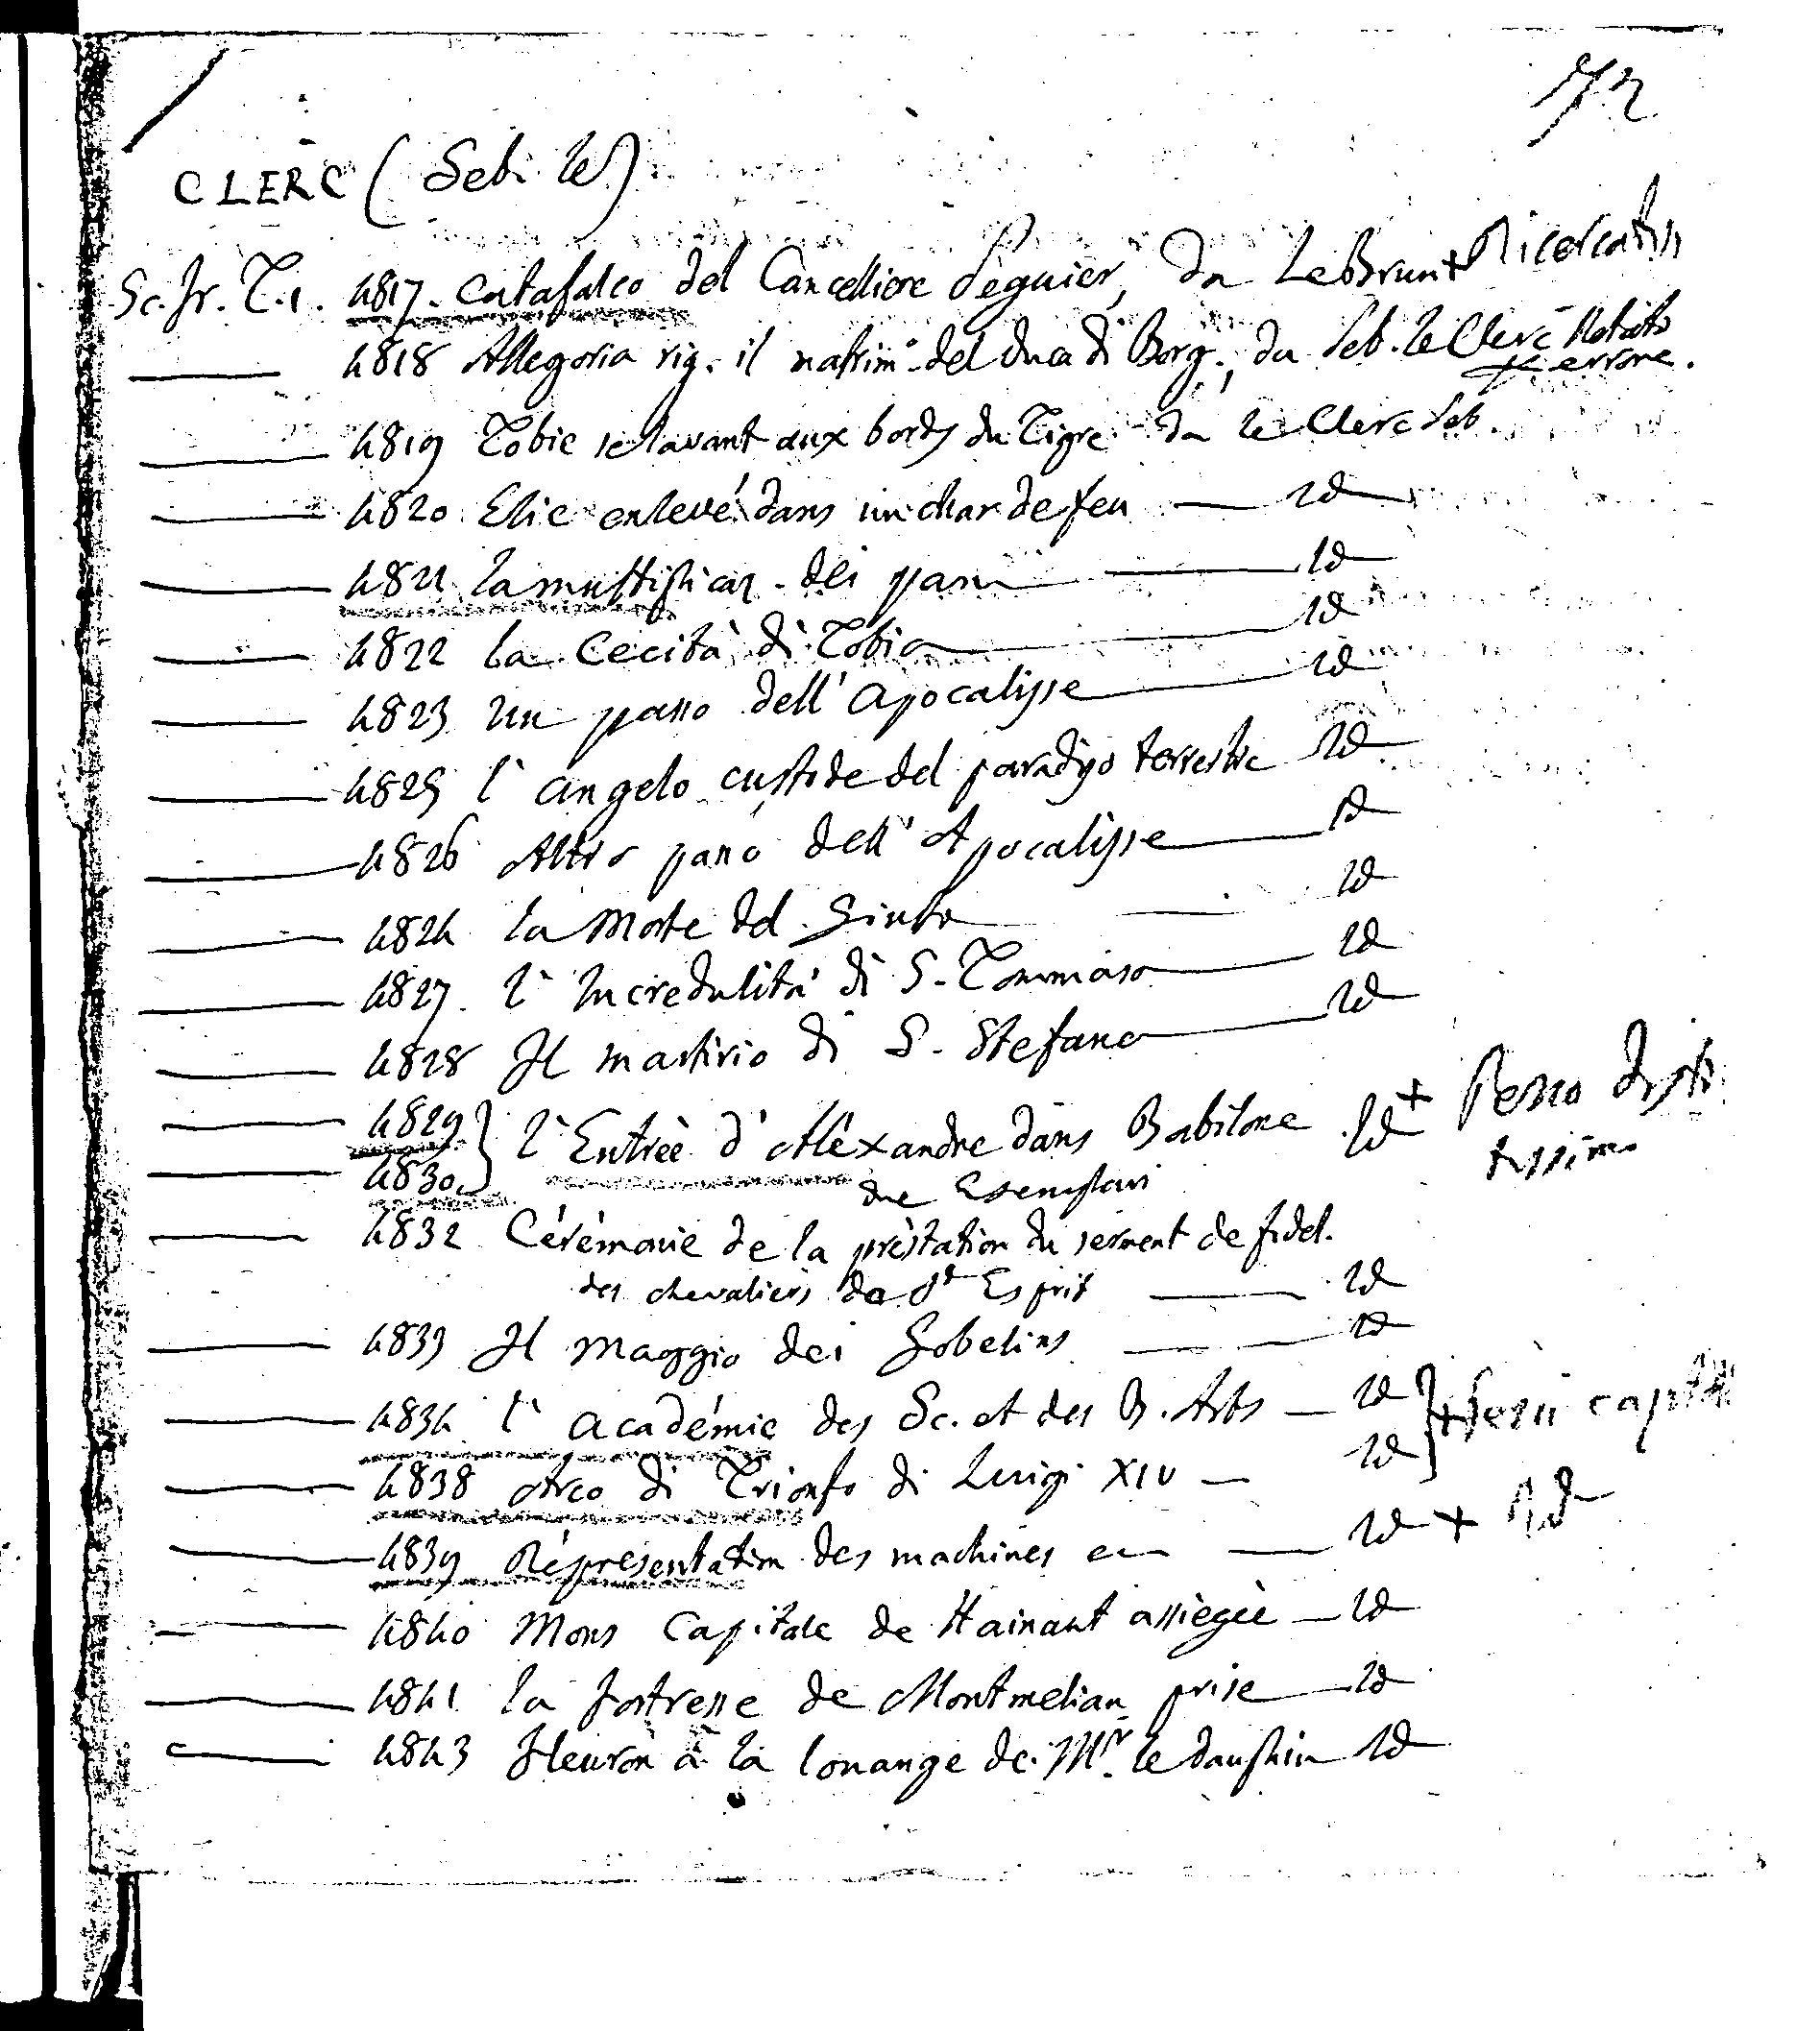 72
CLERC (Seb. le)
Sc. fr. T. 1. 4817. Catafalco del Cancelliere Séguier, da LeBrun + Ricercatiss
4818 Allegoria rig. il matrim.º del Duca di Borg., da Seb. le Clerc Notato
per errore.
4819 Tobie se lavant aux bords du Tigre da le Clerc Seb.
4820 Elie enlevé dans un char de feu — id
4821 la multiplicaz. dei pani — id
4822 La Cecità di Tobia — id
4823 Un passo dell' Apocalisse — id
4825 l' angelo custode del paradiso terrestre id
4826 Altro passo dell' Apocalisse — id
4824 la Morte del Giusto — id
4827. l' Incredulità di S. Tommaso — id
4828 Il martirio di S. Stefano — id
4829 } l' Entrée d' Alexandre dans Babilone id + Pezzo
4830. } due Esemplari
4832 Cérémonie de la prèstation du serment de fidel.
des chevaliers de St Esprit — id
4833 Il Maggio dei Gobelins — id
4834 l' académie des Sc. et des B. Arts — id } + Pezzi capitali
4838 Arco di Trionfo di Luigi XIV — id }
4839 Réprésentation des machines ecc — id + id
4840 Mons Capitale de Hainaut assiègèe — id
4841 la fortresse de Montmelian prise — id
4843 Fleuron à la louange de Mr. le dauphin id